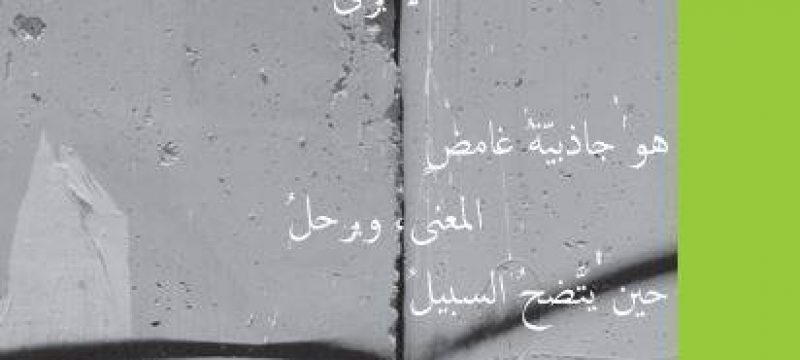 هو جاذبيّةُ غامضِ
المعنى، ويرحلُ
حين يتَّضحُ السبيلُ